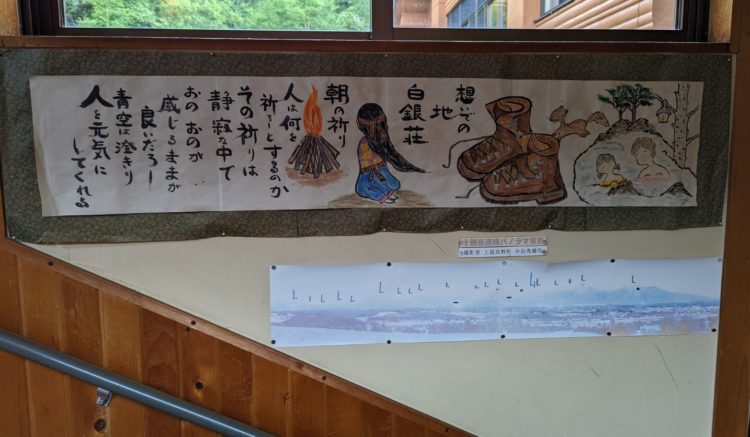 想いでの
地
白銀荘
朝の祈り
人は何を
祈ろーとするのか
その祈りは
静寂な中で
おの おのが
感じるままが
良いだろー
青空は澄きり
人を元気に
してくれる
十勝岳連峰パノラマ写真
撮影者 上富良野町 中谷秀雄氏